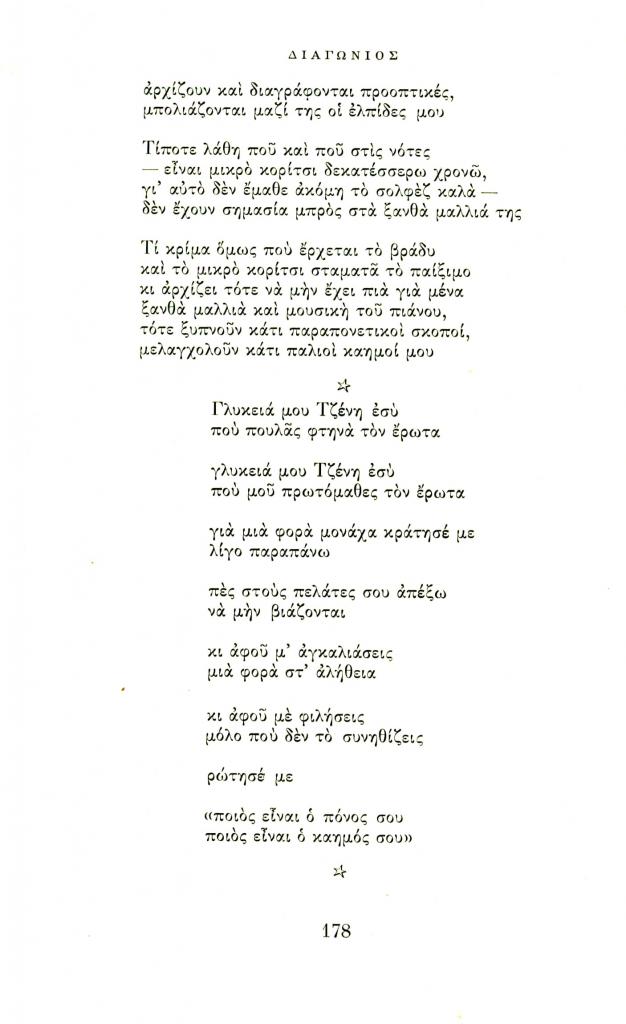 ΔΙΑΓΩΝΙΟΣ
ἀρχίζουν καὶ διαγράφονται προοπτικές,
μπολιάζονται μαζί της οἱ ἐλπίδες μου
Τίποτε λάθη ποῦ καὶ ποῦ στὶς νότες
— εἶναι μικρὸ κορίτσι δεκατέσσερω χρονῶ,
γι' αὐτὸ δὲν ἔμαθε ἀκόμη τὸ σολφὲζ καλὰ —
δὲν ἔχουν σημασία μπρὸς στὰ ξανθὰ μαλλιά της
Τί κρίμα ὅμως ποὺ ἔρχεται τὸ βράδυ
καὶ τὸ μικρὸ κορίτσι σταματᾶ τὸ παίξιμο
κι ἀρχίζει τότε νὰ μὴν ἔχει πιὰ γιὰ μένα
ξανθὰ μαλλιὰ καὶ μουσικὴ τοῦ πιάνου,
τότε ξυπνοῦν κάτι παραπονετικοὶ σκοποί,
μελαγχολοῦν κάτι παλιοὶ καημοί μου
Γλυκειά μου Τζένη ἐσὺ
ποὺ πουλᾶς φτηνὰ τὸν ἔρωτα
γλυκειά μου Τζένη ἐσὺ
ποὺ μοῦ πρωτόμαθες τὸν ἔρωτα
γιὰ μιὰ φορὰ μονάχα κράτησέ με
λίγο παραπάνω
πὲς στοὺς πελάτες σου ἀπέξω
νὰ μὴν βιάζονται
κι ἀφοῦ μ' ἀγκαλιάσεις
μιὰ φορὰ στ' ἀλήθεια
κι ἀφοῦ μὲ φιλήσεις
μόλο ποὺ δὲν τὸ συνηθίζεις
ρώτησέ με
«ποιὸς εἶναι ὁ πόνος σου
ποιὸς εἶναι ὁ καημός σου»
178